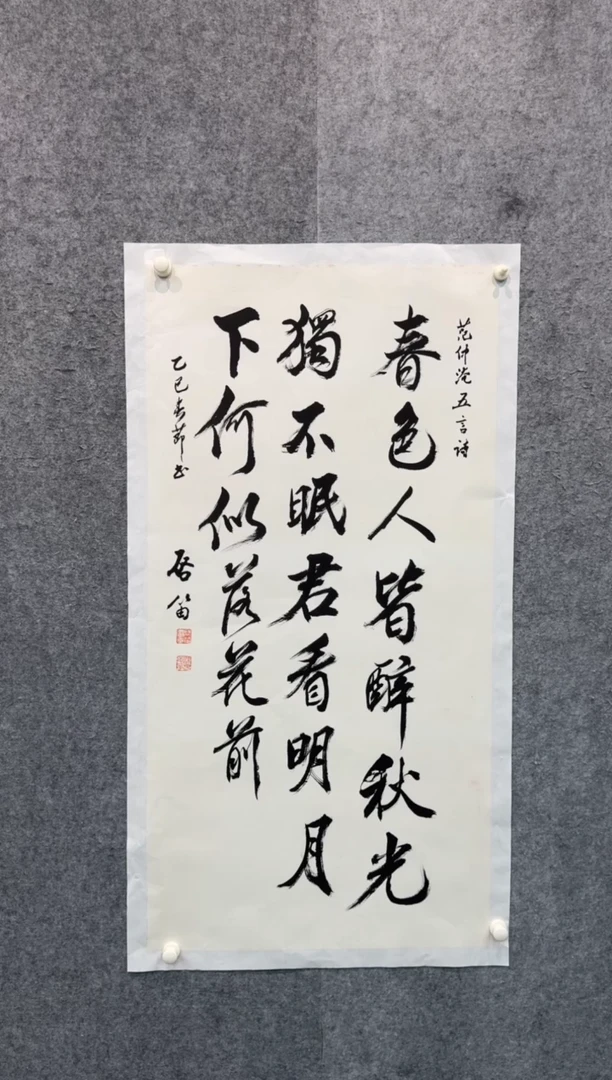 范仲淹五言诗
春色人皆醉秋光
獨不眠君看明月
下何似落花前
乙巳春節書
啓笛